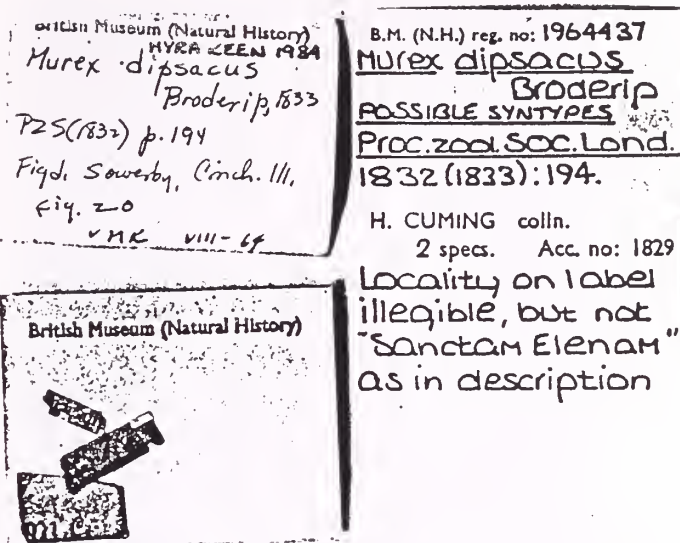 British Museum (Natural History)
MYRA KEEN 1984
Murex dipsacus
Broderip, 1833
PZS (1832) p. 194
Figd. Sowerby, Conch. Ill.
fig. 20
VIII-64
British Museum (Natural History)
B.M. (N.H.) reg. no: 1964437
Murex dipsacus
Broderip
POSSIBLE SYNTYPES
Proc.zool.SOC.Lond.
1832 (1833):194.
H. CUMING colln.
2 specs. Acc. no: 1829
Locality on label
illegible, but not
"Sanctam Elenam"
as in description